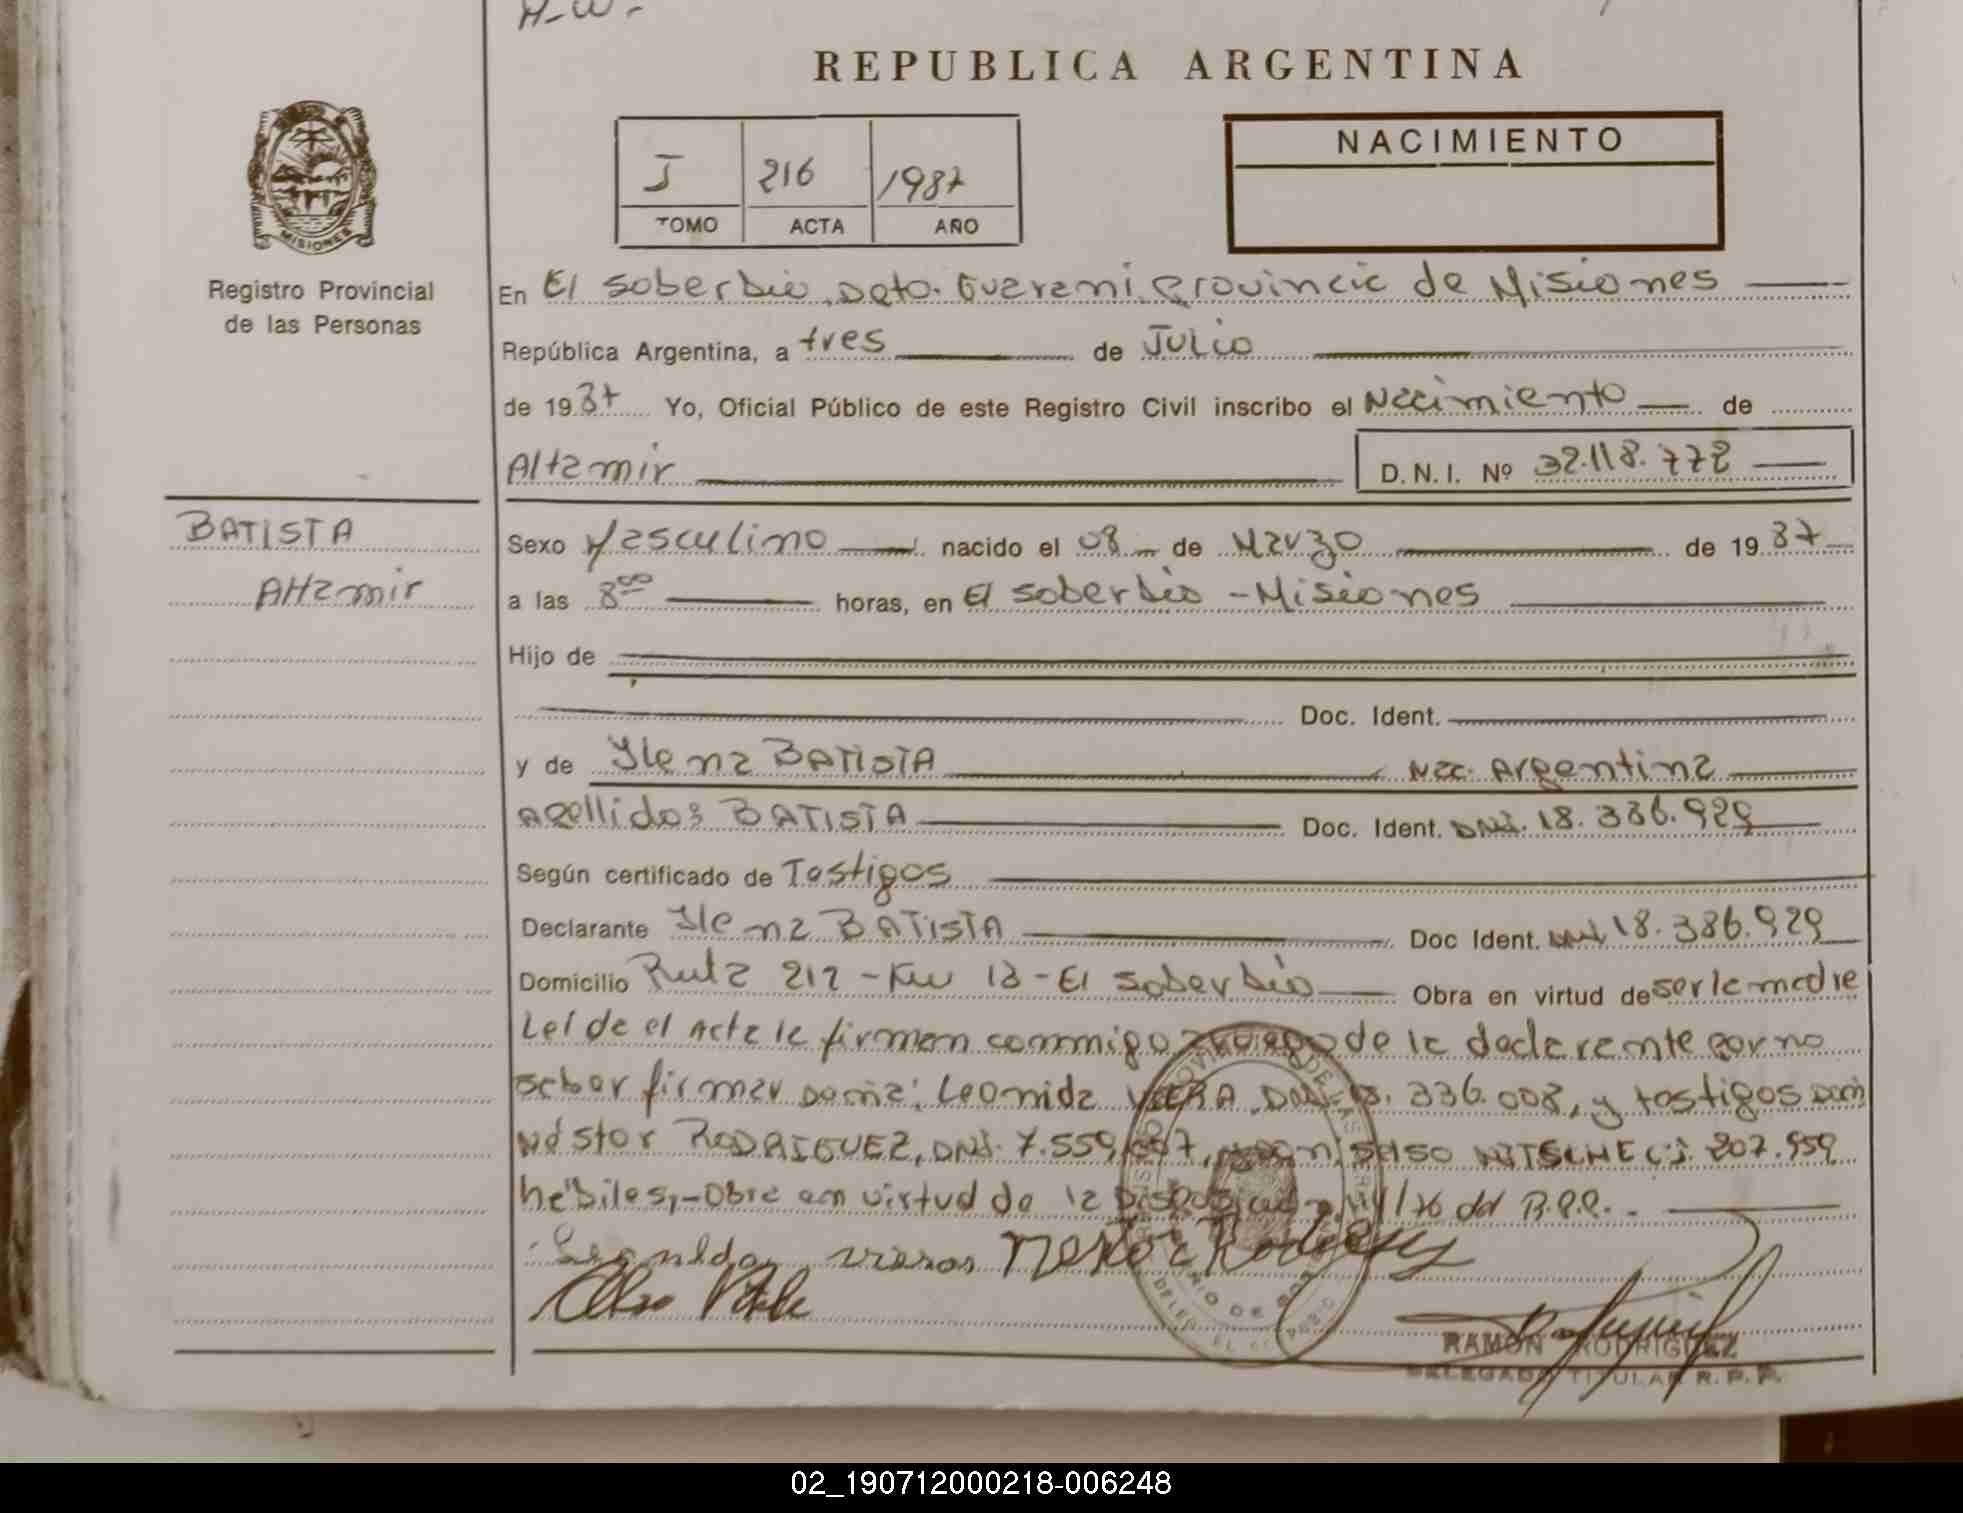 H-W-
REPUBLICA ARGENTINA
J 216 1987
TOMO ACTA AÑO
NACIMIENTO
MISIONES
Registro Provincial
de las Personas
En El Soberbio, Dpto. Guarani, Provincia de Misiones
República Argentina, a tres de Julio
de 1987 Yo, Oficial Público de este Registro Civil inscribo el Nacimiento de
Altamir D.N.I. Nº 32.118.772
BATISTA
Altamir
Sexo Masculino nacido el 08 de Marzo de 1987
a las 8 00 horas, en El Soberbio - Misiones
Hijo de
Doc. Ident.
y de Ilena BATISTA Nac. Argentina
Apellido: BATISTA Doc. Ident. DNI. 18.386.929
Según certificado de Testigos
Declarante Ilena BATISTA Doc Ident. DNI 18.386.929
Domicilio Ruta 212 - Km 13 - El Soberbio Obra en virtud de ser la madre
Leída el Acta la firman conmigo a ruego de la declarante por no
saber firmar Doña: Leonida VIERA, DNI 336.008, y testigos Don
Néstor RODRIGUEZ, DNI. 7.559. NITSCHE C.I. 207.959
hábiles,- Obra en virtud de la 11/76 del R.P.P.-
Nestor Rodriguez
RAMON RODRIGUEZ
DELEGADO TITULAR R.P.P.
02_190712000218-006248